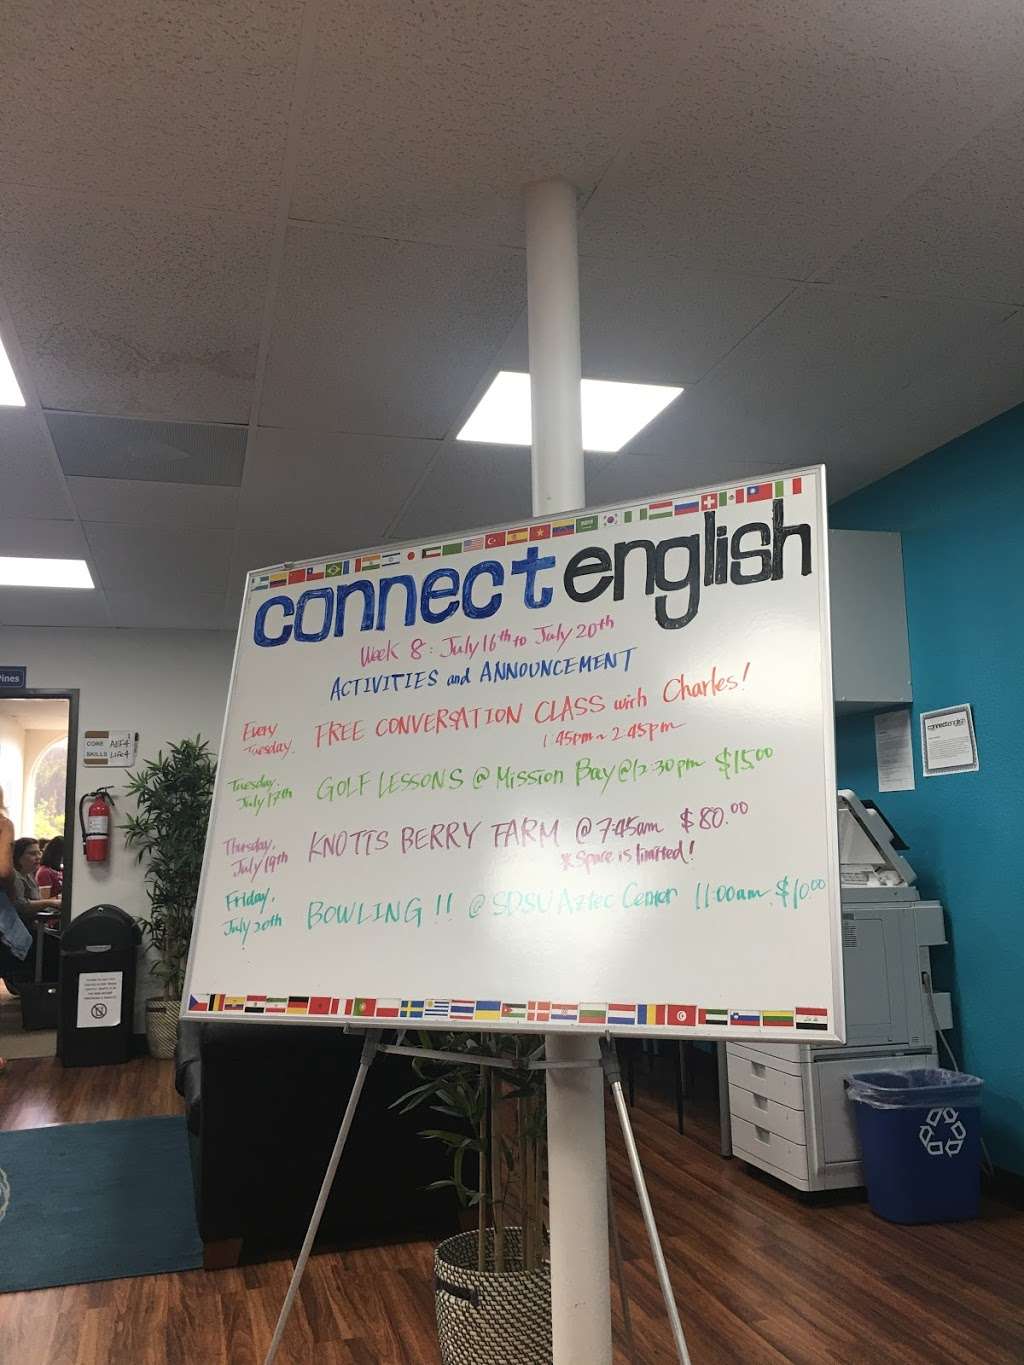 connect english
Week 8: July 16th to July 20th
ACTIVITIES and ANNOUNCEMENT
Every Tuesday.
FREE CONVERSATION CLASS with Charles!
1:45pm ~ 2:45pm
Tuesday, July 17th
GOLF LESSONS @ Mission Bay @ 12:30pm $15.00
Thursday, July 19th
KNOTTS BERRY FARM @ 7:45am $80.00
*Space is limited!
Friday, July 20th
BOWLING !! @ SDSU Aztec Center 11:00am $10.00
Pines
CORE
SKILLS
connectenglish